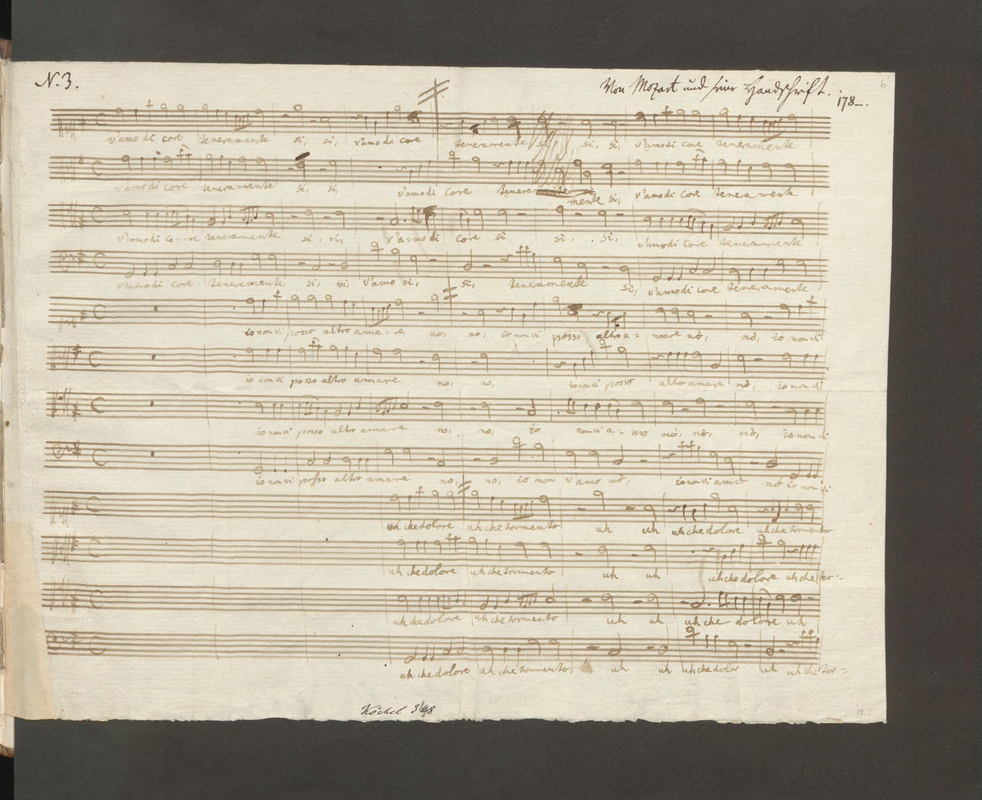 N. 3.
Von Mozart und seiner Handschrift.
178_.
6
v'amo di core teneramente si, si, v'amo di core teneramente si, si, v'amo di core teneramente
v'amo di core teneramente si, si, v'amo di core teneramente si, v'amo di core teneramente
v'amo di core teneramente si, si, v'amo di core si, si, si, v'amo di core teneramente
v'amo di core teneramente si, si, v'amo si, si, teneramente si, v'amo di core teneramente
io non vi posso altro amare no, no, io non vi posso altro a= mare nò, nò, io non vi
io non vi posso altro amare no, no, io non vi posso altro amare nò, io non vi
io non vi posso altro amare no, no, io non vi a- mo nò, nò, nò, io non vi
io non vi posso altro amare no, no, io non v'amo nò, io non vi amo nò io non vi
uh che dolore uh che tormento uh uh uh che dolore uh che tormento
uh che dolore uh che tormento uh uh uh che dolore uh che tor-
uh che dolore uh che tormento uh uh uh che dolore uh
uh che dolore uh che tormento, uh uh uh che dolor uh uh che tor-
Köchel